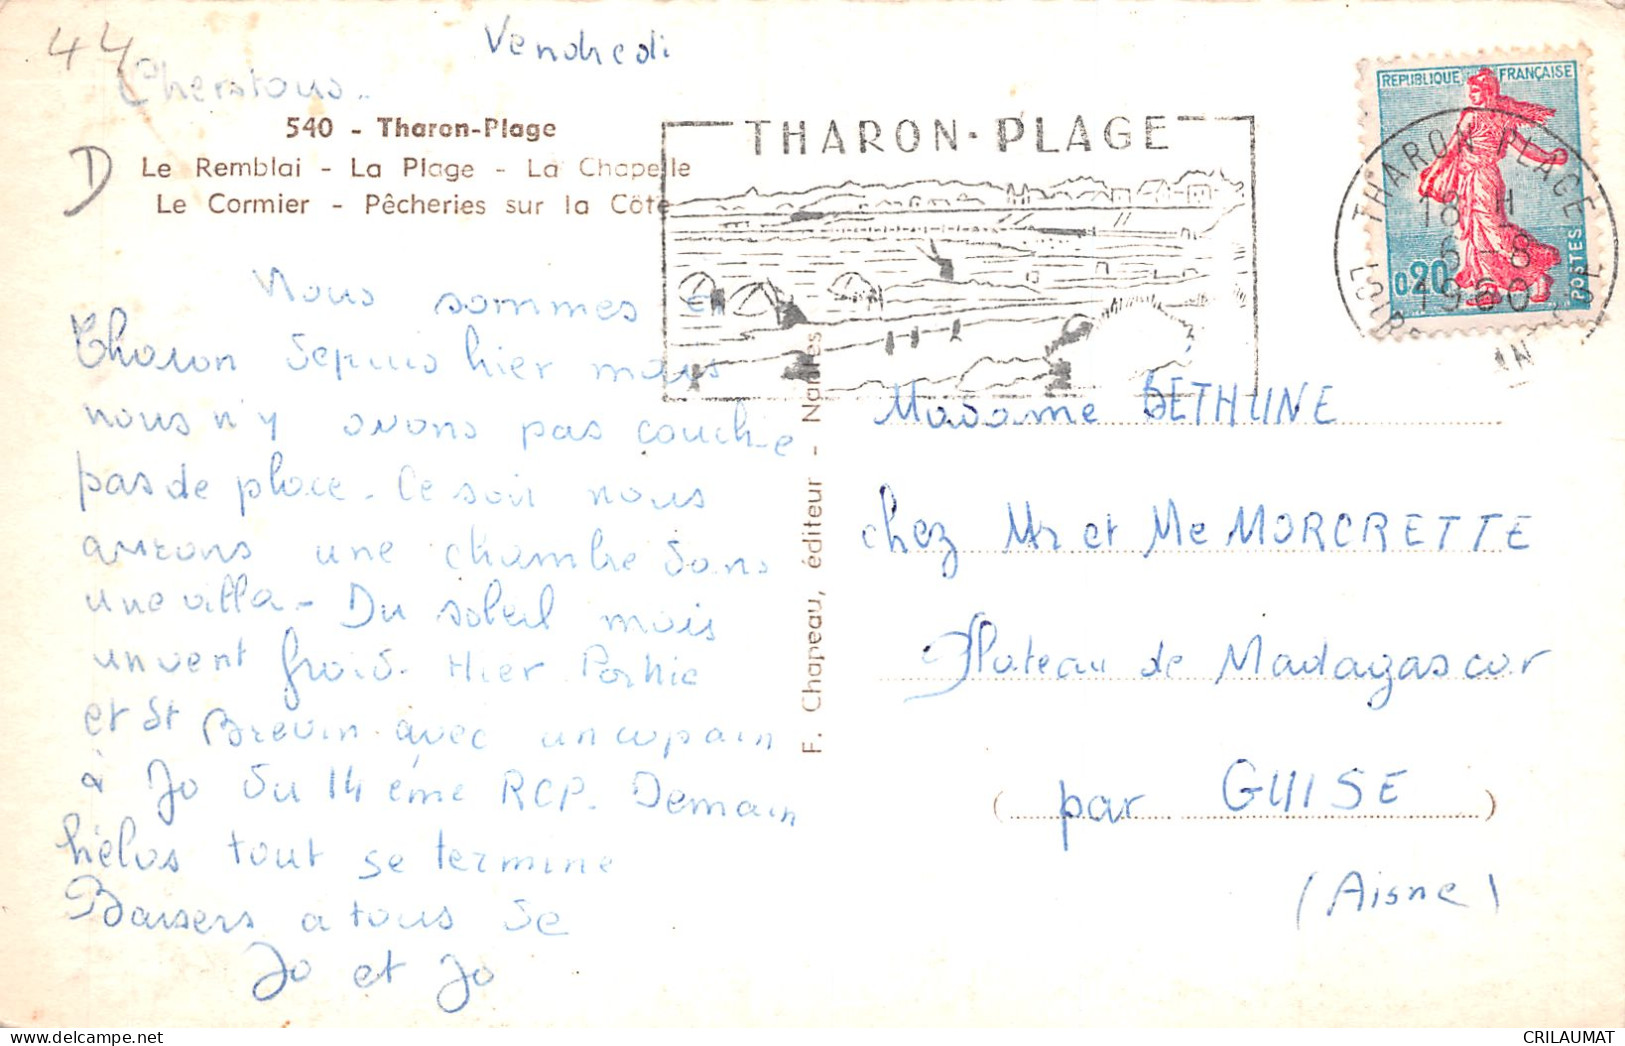 44
Vendredi
Chers tous..
540 - Tharon-Plage
D
Le Remblai - La Plage - La Chapelle
Le Cormier - Pêcheries sur la Côte
THARON-PLAGE
REPUBLIQUE FRANÇAISE
0,20
POSTES
THARON PLAGE
18 H
5 - 8
1960
LOIRE
Nous sommes à
Tharon depuis hier mais
nous n'y avons pas couché
pas de place. Ce soir nous
aurons une chambre dans
une villa - Du soleil mais
un vent froid. Hier Pornic
et St Brevin avec un copain
à Jo du 14 ème RCP. Demain
hélas tout se termine
Baisers a tous de
Jo et Jo
F. Chapeau, éditeur - Nantes
Madame BETHUNE
chez Mr et Me MORCRETTE
Plateau de Madagascar
(par GUISE)
(Aisne)
CRILAUMAT